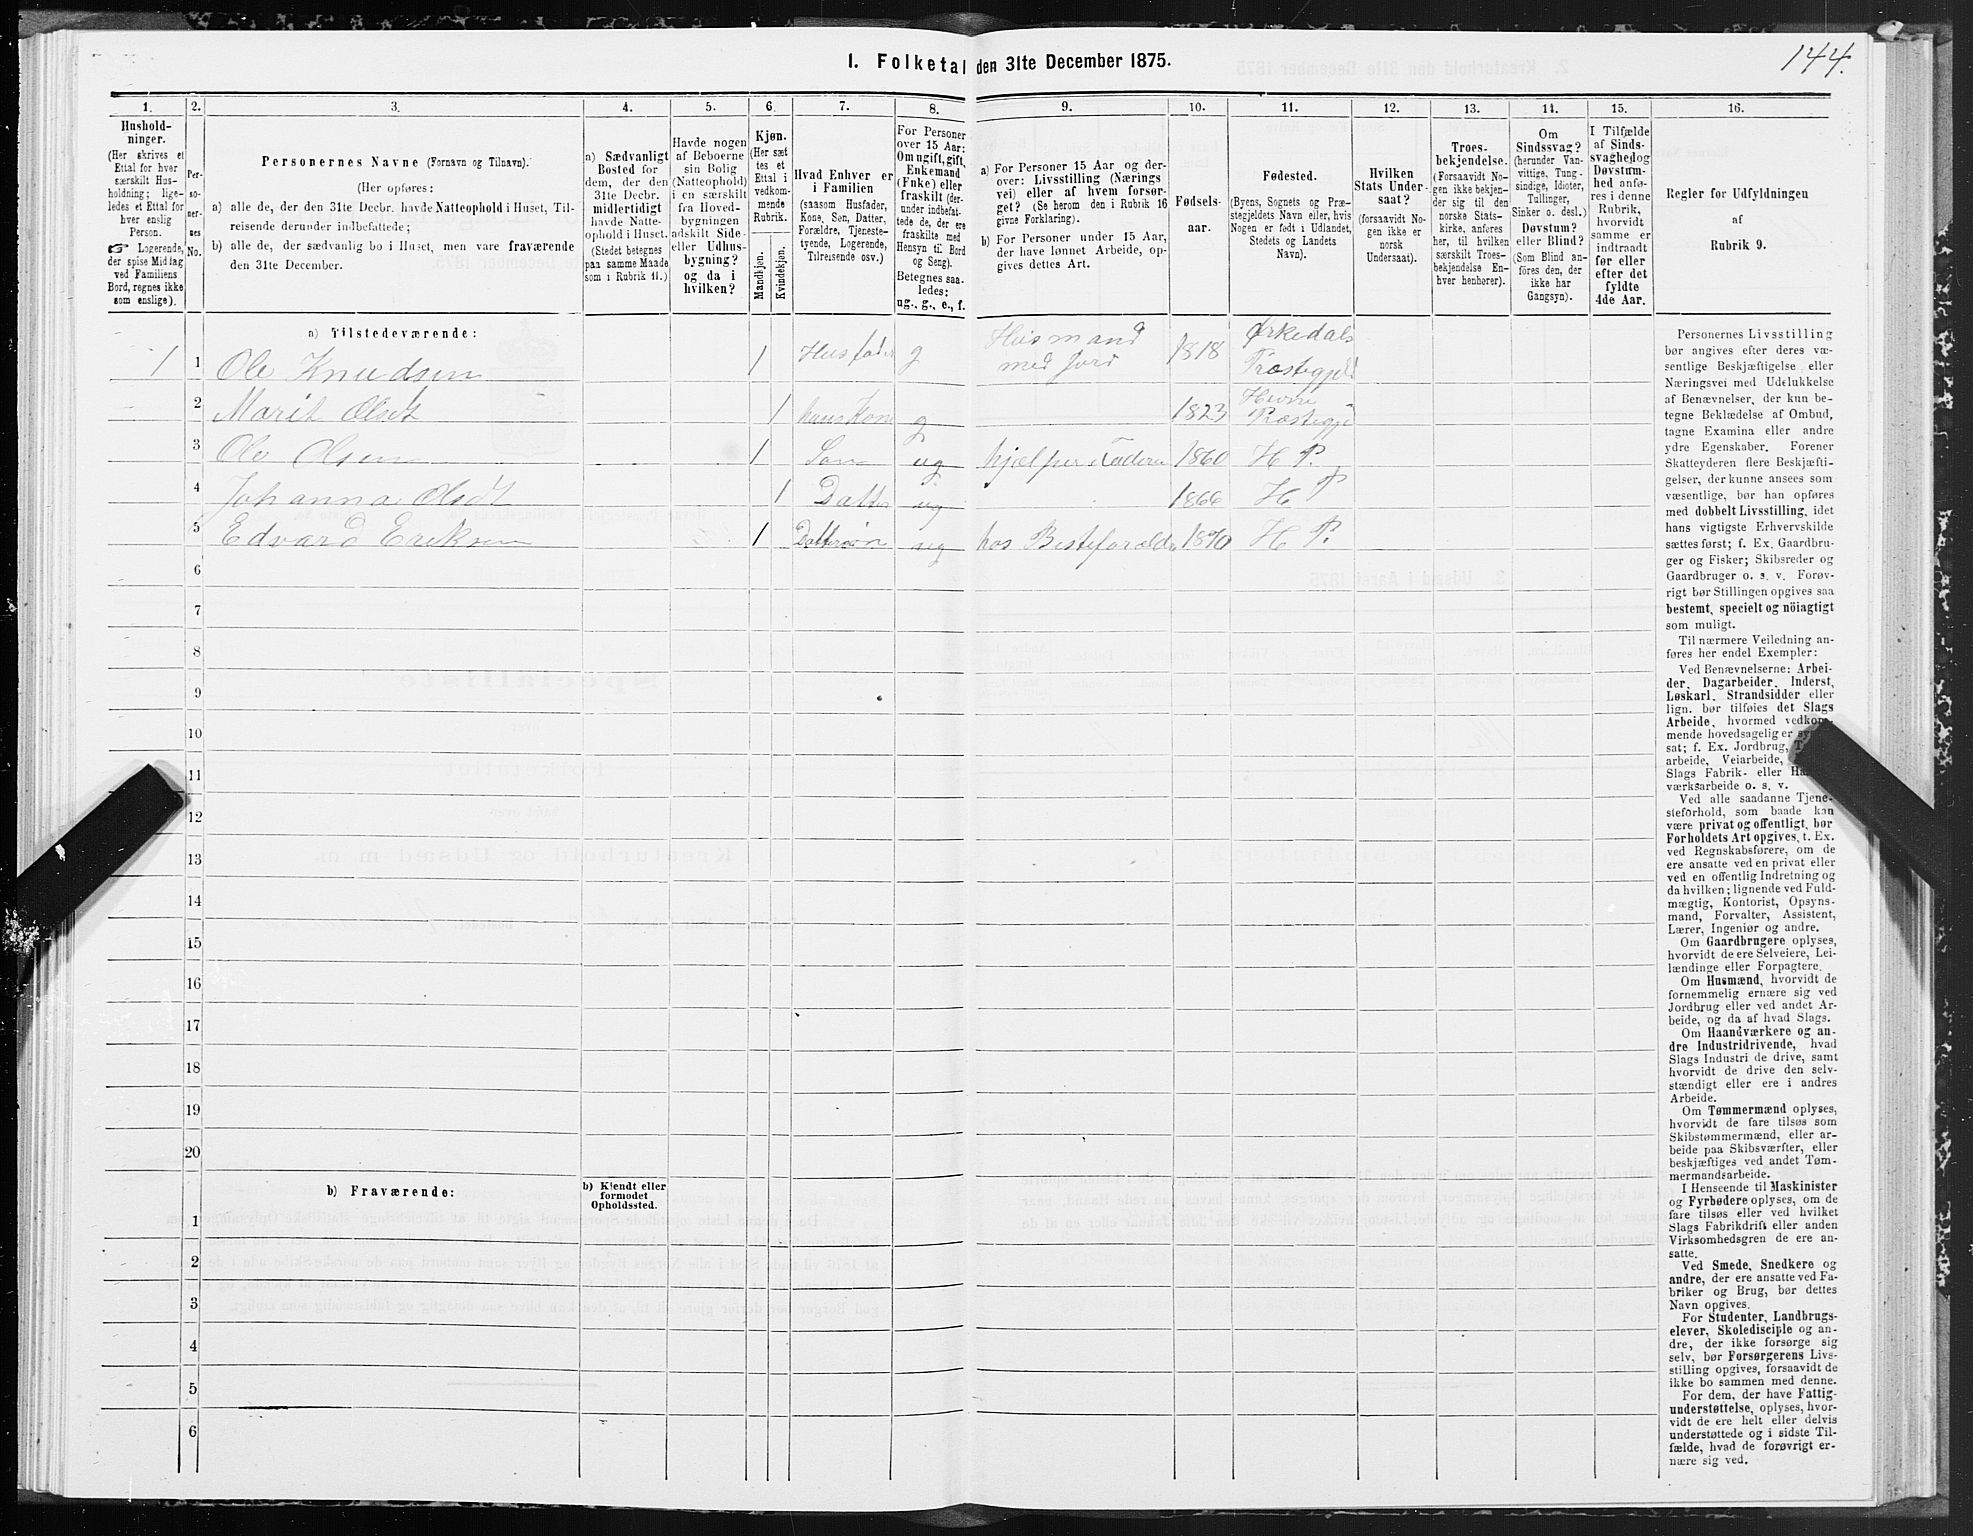 144.
I. Folketal den 31te December 1875.
1. 2. 3. 4. 5. 6. 7. 8. 9. 10. 11. 12. 13. 14. 15. 16.
Hushold-
ninger.
(Her skrives et
Ettal for hver
særskilt Hus-
holdning; lige-
ledes et Ettal for
hver enslig
Person.
☞ Logerende,
der spise Middag
ved Familiens
Bord, regnes ikke
som enslige).
Per-
so-
ner-
nes
No.
Personernes Navne (Fornavn og Tilnavn).
(Her opføres:
a) alle de, der den 31te Decbr. havde Natteophold i Huset, Til-
reisende derunder indbefattede;
b) alle de, der sædvanlig bo i Huset, men vare fraværende
den 31te December.
a) Sædvanligt
Bosted for
dem, der den
31te Decbr.
midlertidigt
havde Natte-
ophold i Huset.
(Stedet betegnes
paa samme Maade
som i Rubrik 11.)
Havde nogen
af Beboerne
sin Bolig
(Natteophold)
i en særskilt
fra Hoved-
bygningen
adskilt Side-
eller Udhus-
bygning?
og da i
hvilken?
Kjøn.
(Her sæt
tes et
Ettal i
vedkom-
mende
Rubrik.
Mandkjøn.
Kvindekjøn.
Hvad Enhver er
i Familien
(saasom Husfader,
Kone, Søn, Datter,
Forældre, Tjeneste-
tyende, Logerende,
Tilreisende osv.)
For Personer
over 15 Aar:
Om ugift, gift,
Enkemand
(Enke) eller
fraskilt (der-
under indbefat-
tede de, der ere
fraskilte med
Hensyn til Bord
og Seng).
Betegnes saa-
ledes:
ug., g., e., f.
a) For Personer 15 Aar og der-
over: Livsstilling (Nærings
vei) eller af hvem forsør-
get? (Se herom den i Rubrik 16
givne Forklaring).
b) For Personer under 15 Aar,
der have lønnet Arbeide, op-
gives dettes Art.
Fødsels-
aar.
Fødested.
(Byens, Sognets og Præ-
stegjeldets Navn eller, hvis
Nogen er født i Udlandet,
Stedets og Landets
Navn).
Hvilken
Stats Under-
saat?
(forsaavidt No-
gen ikke er
norsk
Undersaat).
Troes-
bekjendelse.
(Forsaavidt No-
gen ikke bekjen-
der sig til den
norske Stats-
kirke, anføres
her, til hvilken
særlig Troes-
bekjendelse En-
hver henhører).
Om
Sindssvag?
(herunder Van-
vittige, Tung-
sindige, Idioter,
Tullinger,
Sinker o. desl.)
Døvstum?
eller Blind?
(Som Blind an-
føres den, der
ikke har
Gangsyn).
I Tilfælde
af Sinds-
svaghed og
Døvstum-
hed anfø-
res i denne
Rubrik,
hvorvidt
samme er
indtraadt
før eller
efter det
fyldte
4de Aar.
Regler for Udfyldningen
af
Rubrik 9.
a) Tilstedeværende:
1 1 Ole Knudsen 1 Husfader g Husmand med Jord 1818 Ørkedals Præstegjeld
2 Marit Olsdt 1 hans Kone g 1823 Hevne Præstegj
3 Ole Olsen 1 Søn ug hjælper Faderen 1860 H P.
4 Johanna Olsdt 1 Datter ug 1866 H P
5 Edvard Eriksen 1 Dattersøn ug hos Besteforældre 1870 H P.
6
7
8
9
10
11
12
13
14
15
16
17
18
19
20
b) Fraværende:
b) Kjendt eller
formodet
Opholdssted.
1
2
3
4
5
6
Personernes Livsstilling
bør angives efter deres væ-
sentlige Beskjæftigelse eller
Næringsvei med Udelukkelse
af Benævnelser, der kun be-
tegne Beklædelse af Ombud,
tagne Examina eller andre
ydre Egenskaber. Forener
Skatteyderen flere Beskjæfti-
gelser, der kunne ansees som
væsentlige, bør han opføres
med dobbelt Livsstilling, idet
hans vigtigste Erhvervskilde
sættes først; f. Ex. Gaardbru-
ger og Fisker; Skibsreder og
Gaardbruger o. s. v. Forøv-
rigt bør Stillingen opgives saa
bestemt, specielt og nöiagtigt
som muligt.
Til nærmere Veiledning an-
føres her endel Exempler:
Ved Benævnelserne: Arbei-
der, Dagarbeider, Inderst,
Løskarl, Strandsidder eller
lign. bør tilføies det Slags
Arbeide, hvormed vedkom-
mende hovedsagelig er
sat; f. Ex. Jordbrug,
arbeide, Veiarbeide,
Slags Fabrik- eller
værksarbeide o. s. v.
Ved alle saadanne Tjene-
steforhold, som baade kan
være privat og offentligt, bør
Forholdets Art opgives, t. Ex.
ved Regnskabsførere, om de
ere ansatte ved en privat eller
ved en offentlig Indretning og
da hvilken; lignende ved Fuld-
mægtig, Kontorist, Opsyns-
mand, Forvalter, Assistent,
Lærer, Ingeniør og andre.
Om Gaardbrugere oplyses,
hvorvidt de ere Selveiere, Lei-
lændinge eller Forpagtere.
Om Husmænd, hvorvidt de
fornemmelig ernære sig ved
Jordbrug eller ved andet Ar-
beide, og da af hvad Slags.
Om Haandværkere og an-
dre Industridrivende, hvad
Slags Industri de drive, samt
hvorvidt de drive den selv-
stændigt eller ere i andres
Arbeide.
Om Tømmermænd oplyses,
hvorvidt de fare tilsøs som
Skibstømmermænd, eller ar-
beide paa Skibsværfter, eller
beskjæftiges ved andet Tøm-
mermandsarbeide.
I Henseende til Maskinister
og Fyrbødere oplyses, om de
fare tilsøs eller ved hvilket
Slags Fabrikdrift eller anden
Virksomhedsgren de ere an-
satte.
Ved Smede, Snedkere og
andre, der ere ansatte ved Fa-
briker og Brug, bør dettes
Navn opgives.
For Studenter, Landbrugs-
elever, Skoledisciple og an-
dre, der ikke forsørge sig
selv, bør Forsørgerens Livs-
stilling opgives, forsaavidt de
ikke bo sammen med denne.
For dem, der have Fattig-
understøttelse, oplyses, hvor-
vidt de ere helt eller delvis
understøttede og i sidste Til-
fælde, hvad de forøvrigt er-
nære sig ved.